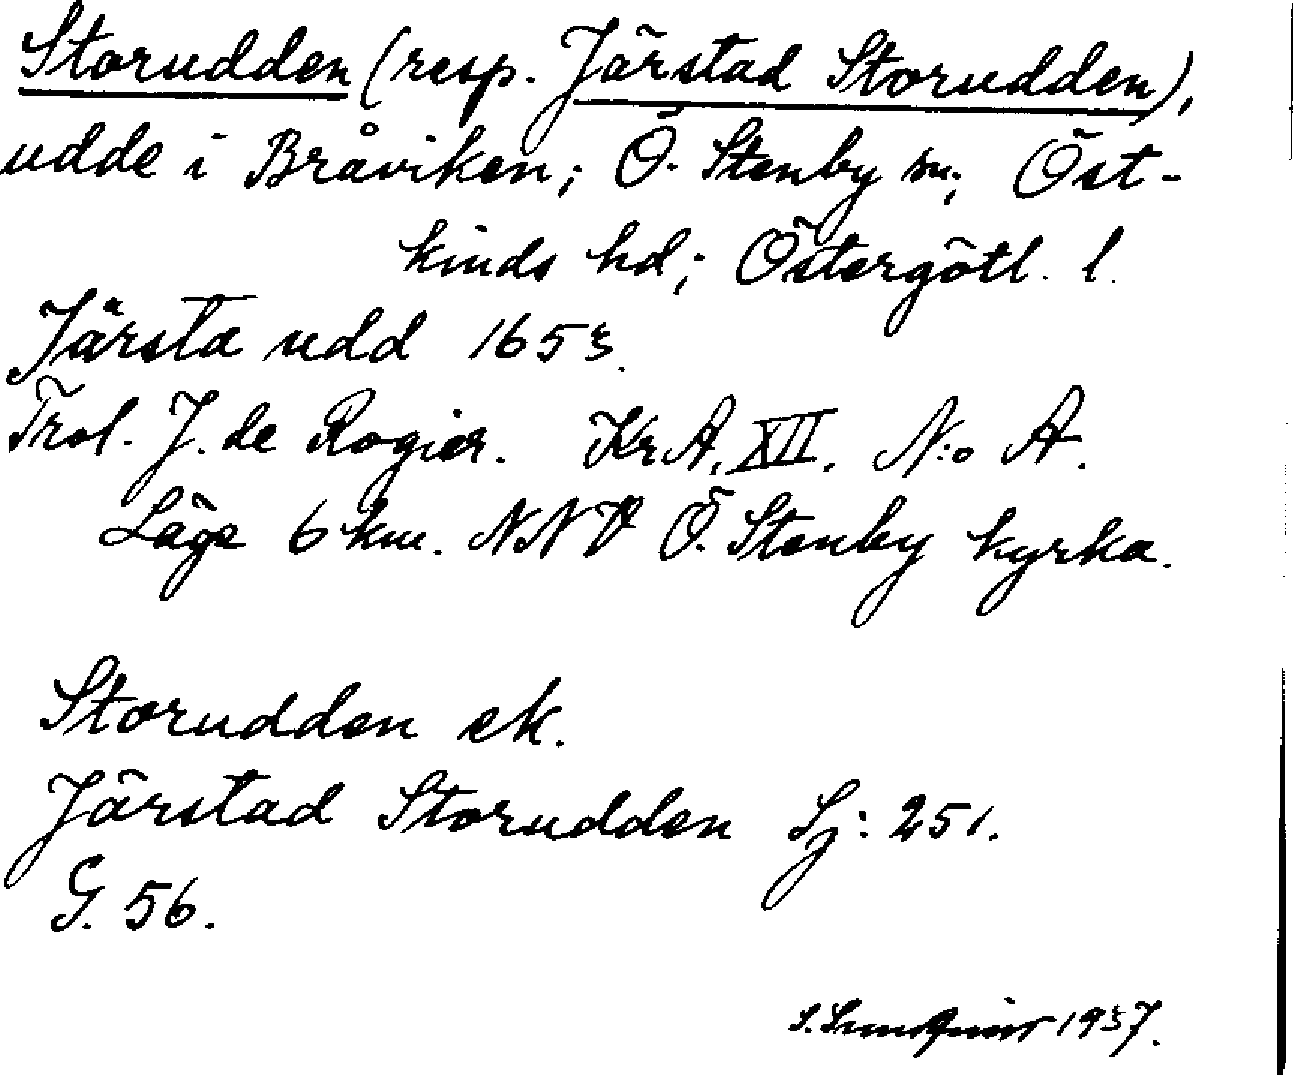 Storudden (resp. Järstad Storudden),
udde i Bråviken; Ö. Stenby sn; Öst-
kinds hd; Östergötl. l.
Järsta udd 1653.
Trol. J. de Rogier. Kr.A. XII. N:o A.
Läge 6 km. NNV Ö. Stenby kyrka.
Storudden ek.
Järstad Storudden Sj: 251.
G. 56.
S. Lundquist 1937.